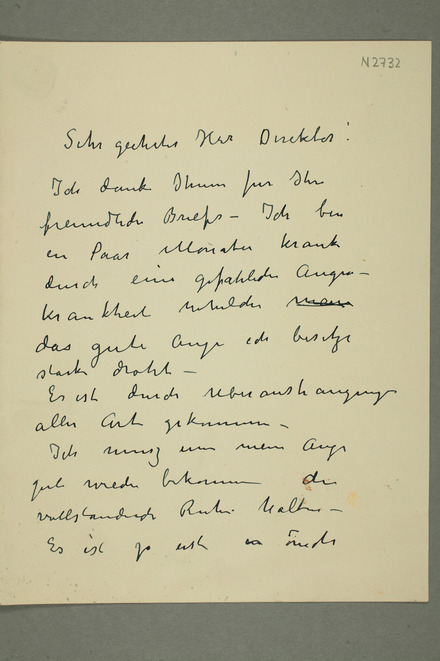 N2732
Sehr geehrter Herr Direktor!
Ich dank Ihnen fur Ihr
freundliche Briefe – Ich bin
ein Paar Monate krank
durch eine gefahrliche Augen–
krankheit welche
das gute Auge ich besitze
stark droht –
Es ist durch uberanstrangung
aller Art gekommen –
Ich musz um mein Auge
gut wieder bekommen die
vollstandiche Ruhe halten –
Es ist ja